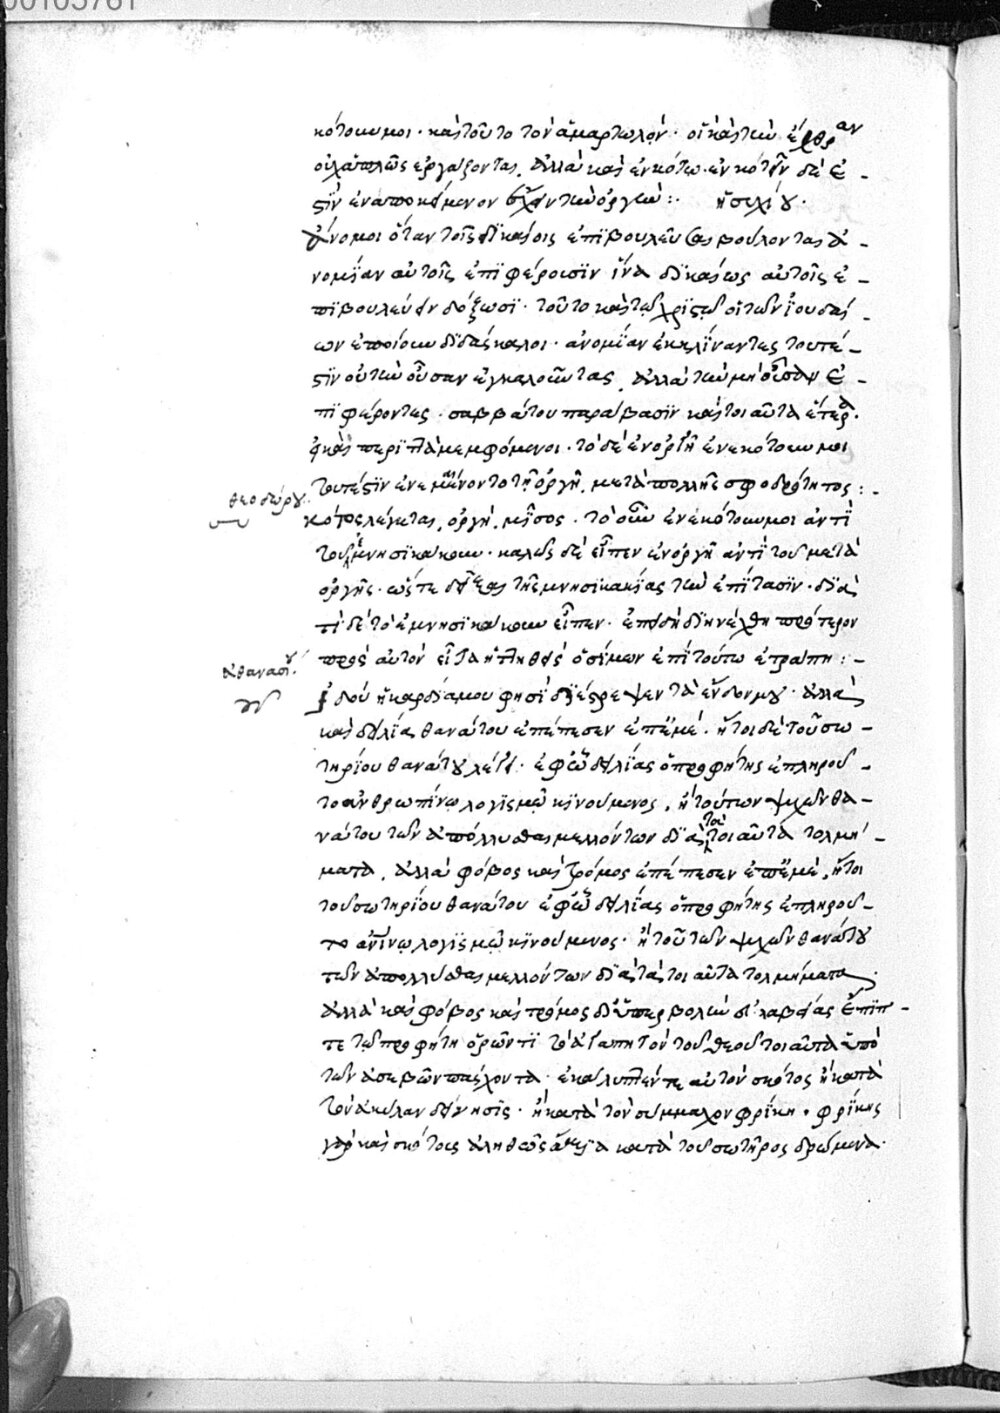 00105761
κότουν μοι · καὶ τοῦτο τὸν ἁμαρτωλόν · οἳ καὶ τὴν ἔχθραν
οὐχ ἁπλῶς ἐργάζονται, ἀλλὰ καὶ ἐν κότω · ἐν κότειν δέ ἐ-
στὶν ἐναποκείμενον ἔχειν τὴν ὀργήν :· ἡσυχίου ·
γίνομοι ὅταν τοῖς δικαίοις ἐπιβουλεῦσαι βούλονται ἀ-
νομίαν αὐτοῖς ἐπιφέρουσιν ἵνα δικαίως αὐτοῖς ἐ-
πιβουλεύειν δόξωσι · τοῦτο καὶ τῶ χριστῶ οἱ τῶν ἰουδαί-
ων ἐποίουν διδάσκαλοι · ἀνομίαν ἐκκλίναντες τουτέ-
στιν οὐ τὴν οὖσαν ἐγκαλοῦντες, ἀλλὰ τὴν μὴ οὖσαν ἐ-
πιφέροντες · σαββάτου παράβασιν καὶ τοιαῦτα ἕτερα ·
καὶ περὶ πλὰ μεμφόμενοι · τὸ δὲ ἐν ὀργῆ ἐνεκότουν μοι
τουτέστιν ἐνέμενον τῆ ὀργῆ, μετὰ πολλῆς σφοδρότητος :-
θεοδώρου
κότος λέγεται, ὀργὴ, μῖσος · τὸ οὖν ἐνεκότουν μοι ἀντὶ
τοῦ ἐμνησικάκουν · καλῶς δὲ εἶπεν ἐν ὀργῆ ἀντὶ τοῦ μετὰ
ὀργῆς · ὥστε δεῖξαι τῆς μνησικακίας τὴν ἐπίτασιν · διὰ
τί δὲ τὸ ἐμνησικάκουν εἶπεν · ἐπειδὴ διηνέχθη πρότερον
πρὸς αὐτὸν εἶτα ἡττηθεὶς ὁ σίμων ἐπὶ τούτω ἐτράπη :-
ἀθανασίου
ἰδοὺ ἡ καρδία μου φησὶ διέστρεψεν τὰ ἔνδον μου · ἀλλὰ
καὶ δειλία θανάτου ἐπέπεσεν ἐπ' ἐμέ · ἤτοι δὲ τοῦ σω-
τηρίου θανάτου λέγει · ἐφ' ὧ δειλίας ὁ προφήτης ἐπληροῦ-
το ἀνθρωπίνω λογισμῶ κινούμενος, ἢ τούτων ψυχῶν θα-
νάτου τῶν ἀπόλλυσθαι μελλόντων διὰ τὰ τοιαῦτα τολμή-
ματα, ἀλλὰ φόβος καὶ τρόμος ἐπέπεσεν ἐπ' ἐμὲ, ἤτοι
τοῦ σωτηρίου θανάτου ἐφ' ὧ δειλίας ὁ προφήτης ἐπληροῦ-
το ἀνίνω λογισμῶ κινούμενος · ἢ τούτων ψυχῶν θανάτου
τῶν ἀπόλλυσθαι μελλόντων διὰ τὰ τοιαῦτα τολμήματα ·
ἀλλὰ καὶ φόβος καὶ τρόμος δι' ὑπερβολὴν εὐλαβείας ἐπίπ-
τε τῶ προφήτη ὁρῶντι τὸ ἀγαπητὸν τοῦ θεοῦ τοιαῦτα ὑπὸ
τῶν ἀσεβῶν πάσχοντα · ἐκάλυπτέν τε αὐτὸν σκότος ἢ κατὰ
τὸν ἀκύλαν δίνησις · ἢ κατὰ τὸν σύμμαχον φρίκη · φρίκης
γὰρ καὶ σκότους ἀληθῶς ἄξια κατὰ τοῦ σωτῆρος δρώμενα ·